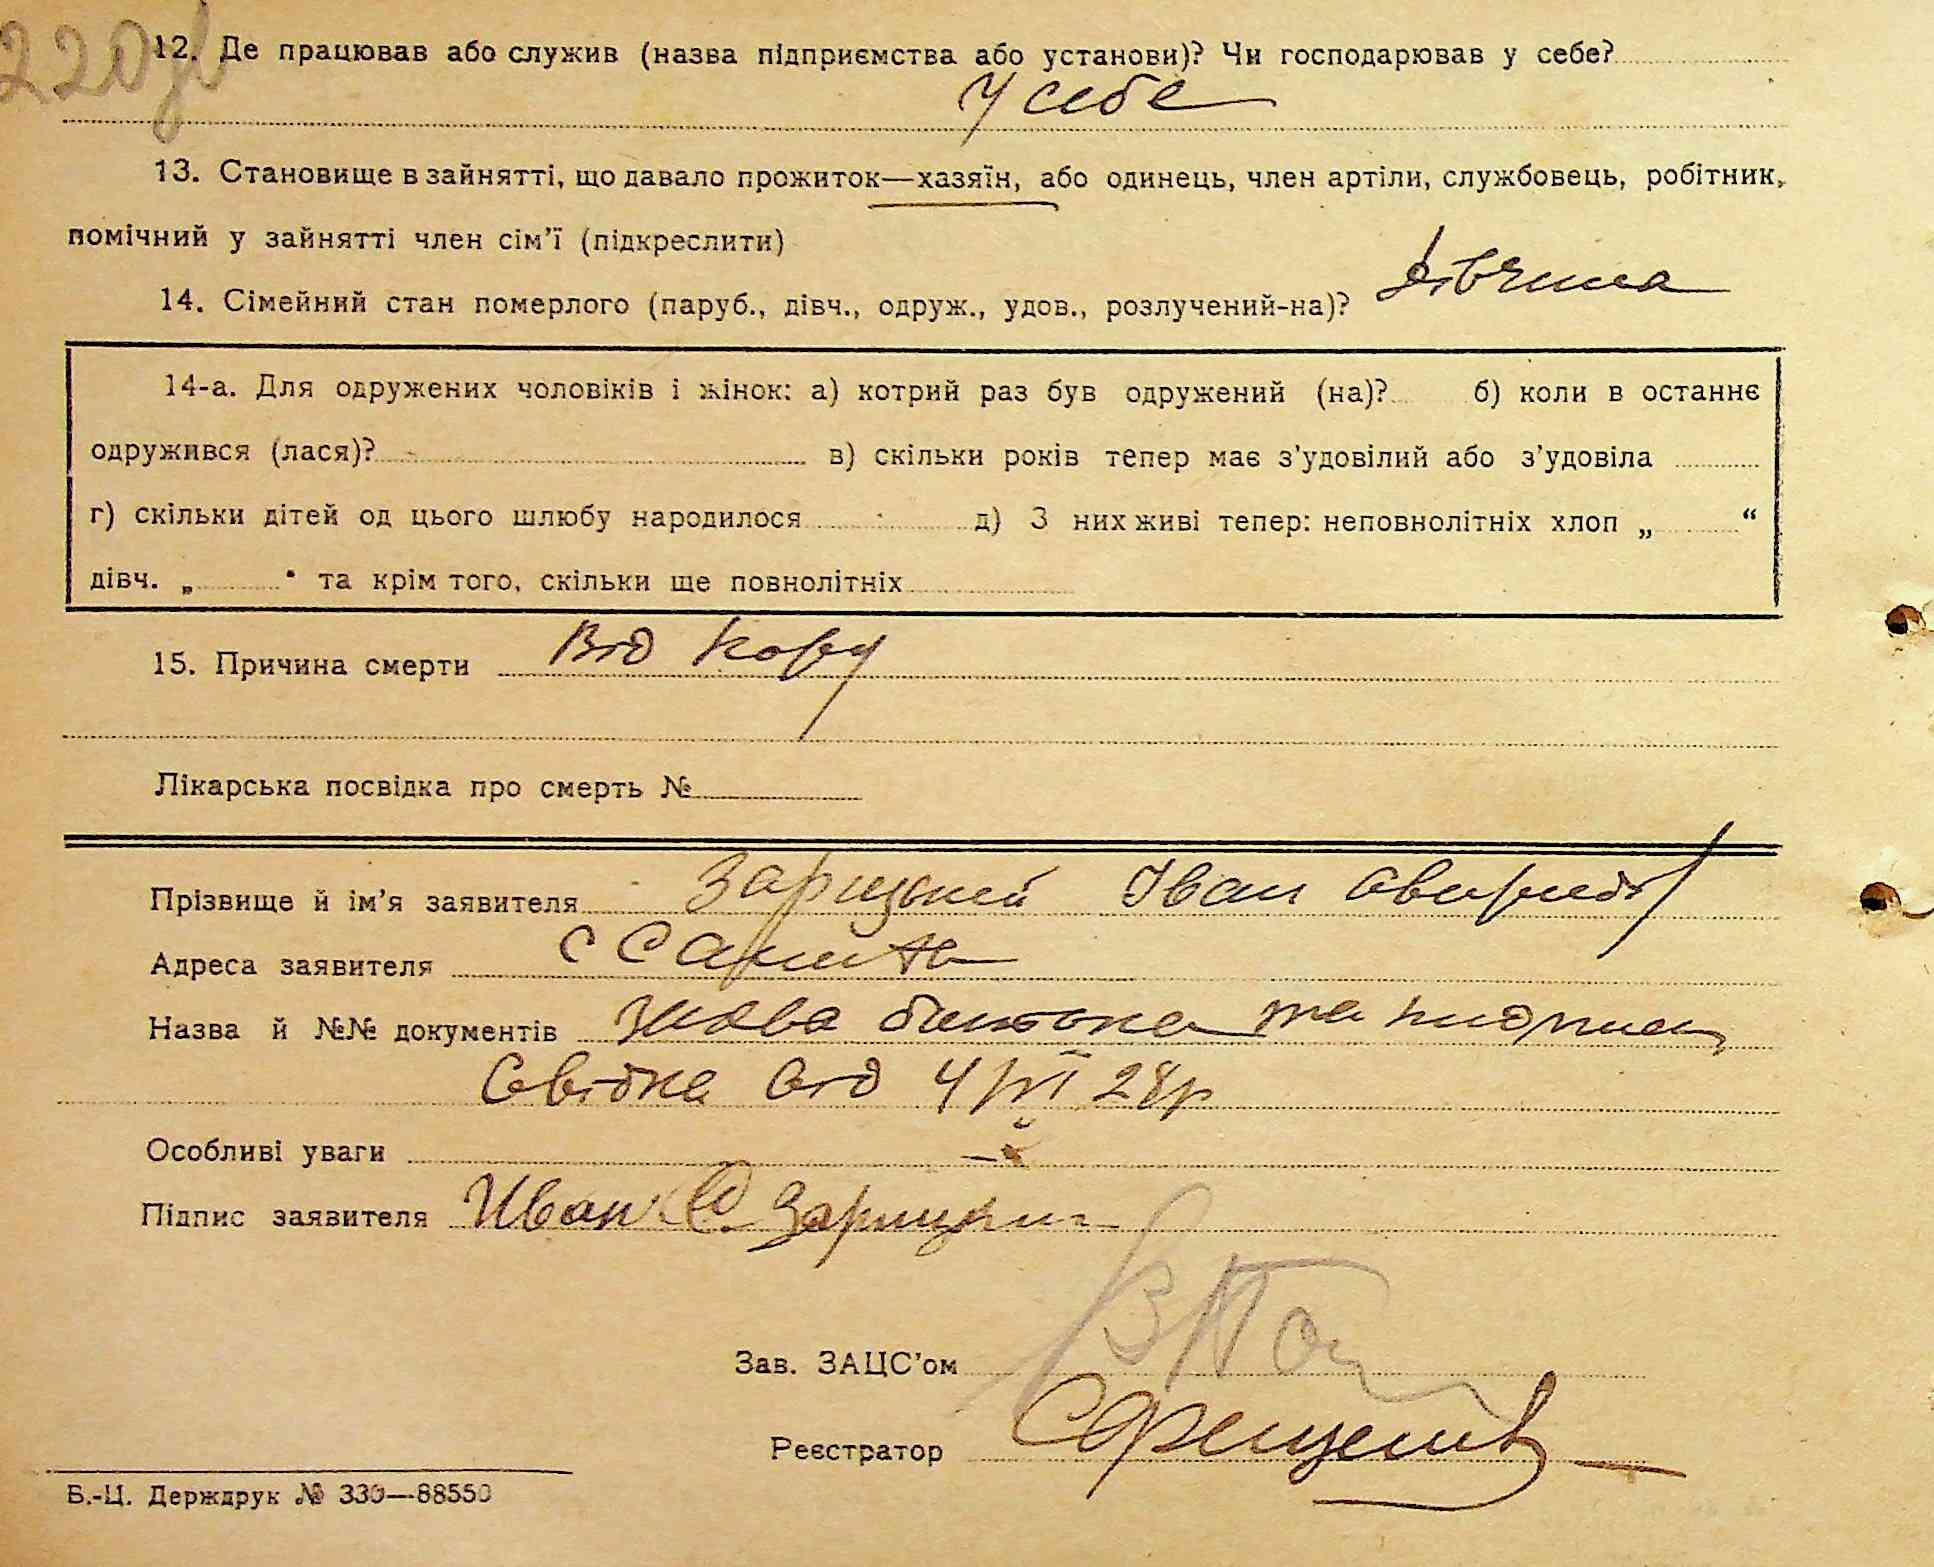 220
12. Де працював або служив (назва підприємства або установи)? Чи господарював у себе?
У себе
13. Становище в зайнятті, що давало прожиток—хазяїн, або одинець, член артіли, службовець, робітник,
помічний у зайнятті член сім'ї (підкреслити)
14. Сімейний стан померлого (паруб., дівч., одруж., удов., розлучений-на)? Дівчина
14-а. Для одружених чоловіків і жінок: а) котрий раз був одружений (на)? б) коли в останнє
одружився (лася)? в) скільки років тепер має з'удовілий або з'удовіла
г) скільки дітей од цього шлюбу народилося д) З них живі тепер: неповнолітніх хлоп „ “
дівч. „ “ та крім того, скільки ще повнолітніх
15. Причина смерти Від кору
Лікарська посвідка про смерть №
Прізвище й ім'я заявителя Зарицький Іван
Адреса заявителя с
Назва й №№ документів заява батька та
Свідка від 4/VI 28р
Особливі уваги
Підпис заявителя Иван С Зарицкий
Зав. ЗАЦС'ом
Реєстратор
Б.-Ц. Держдрук № 330—88550